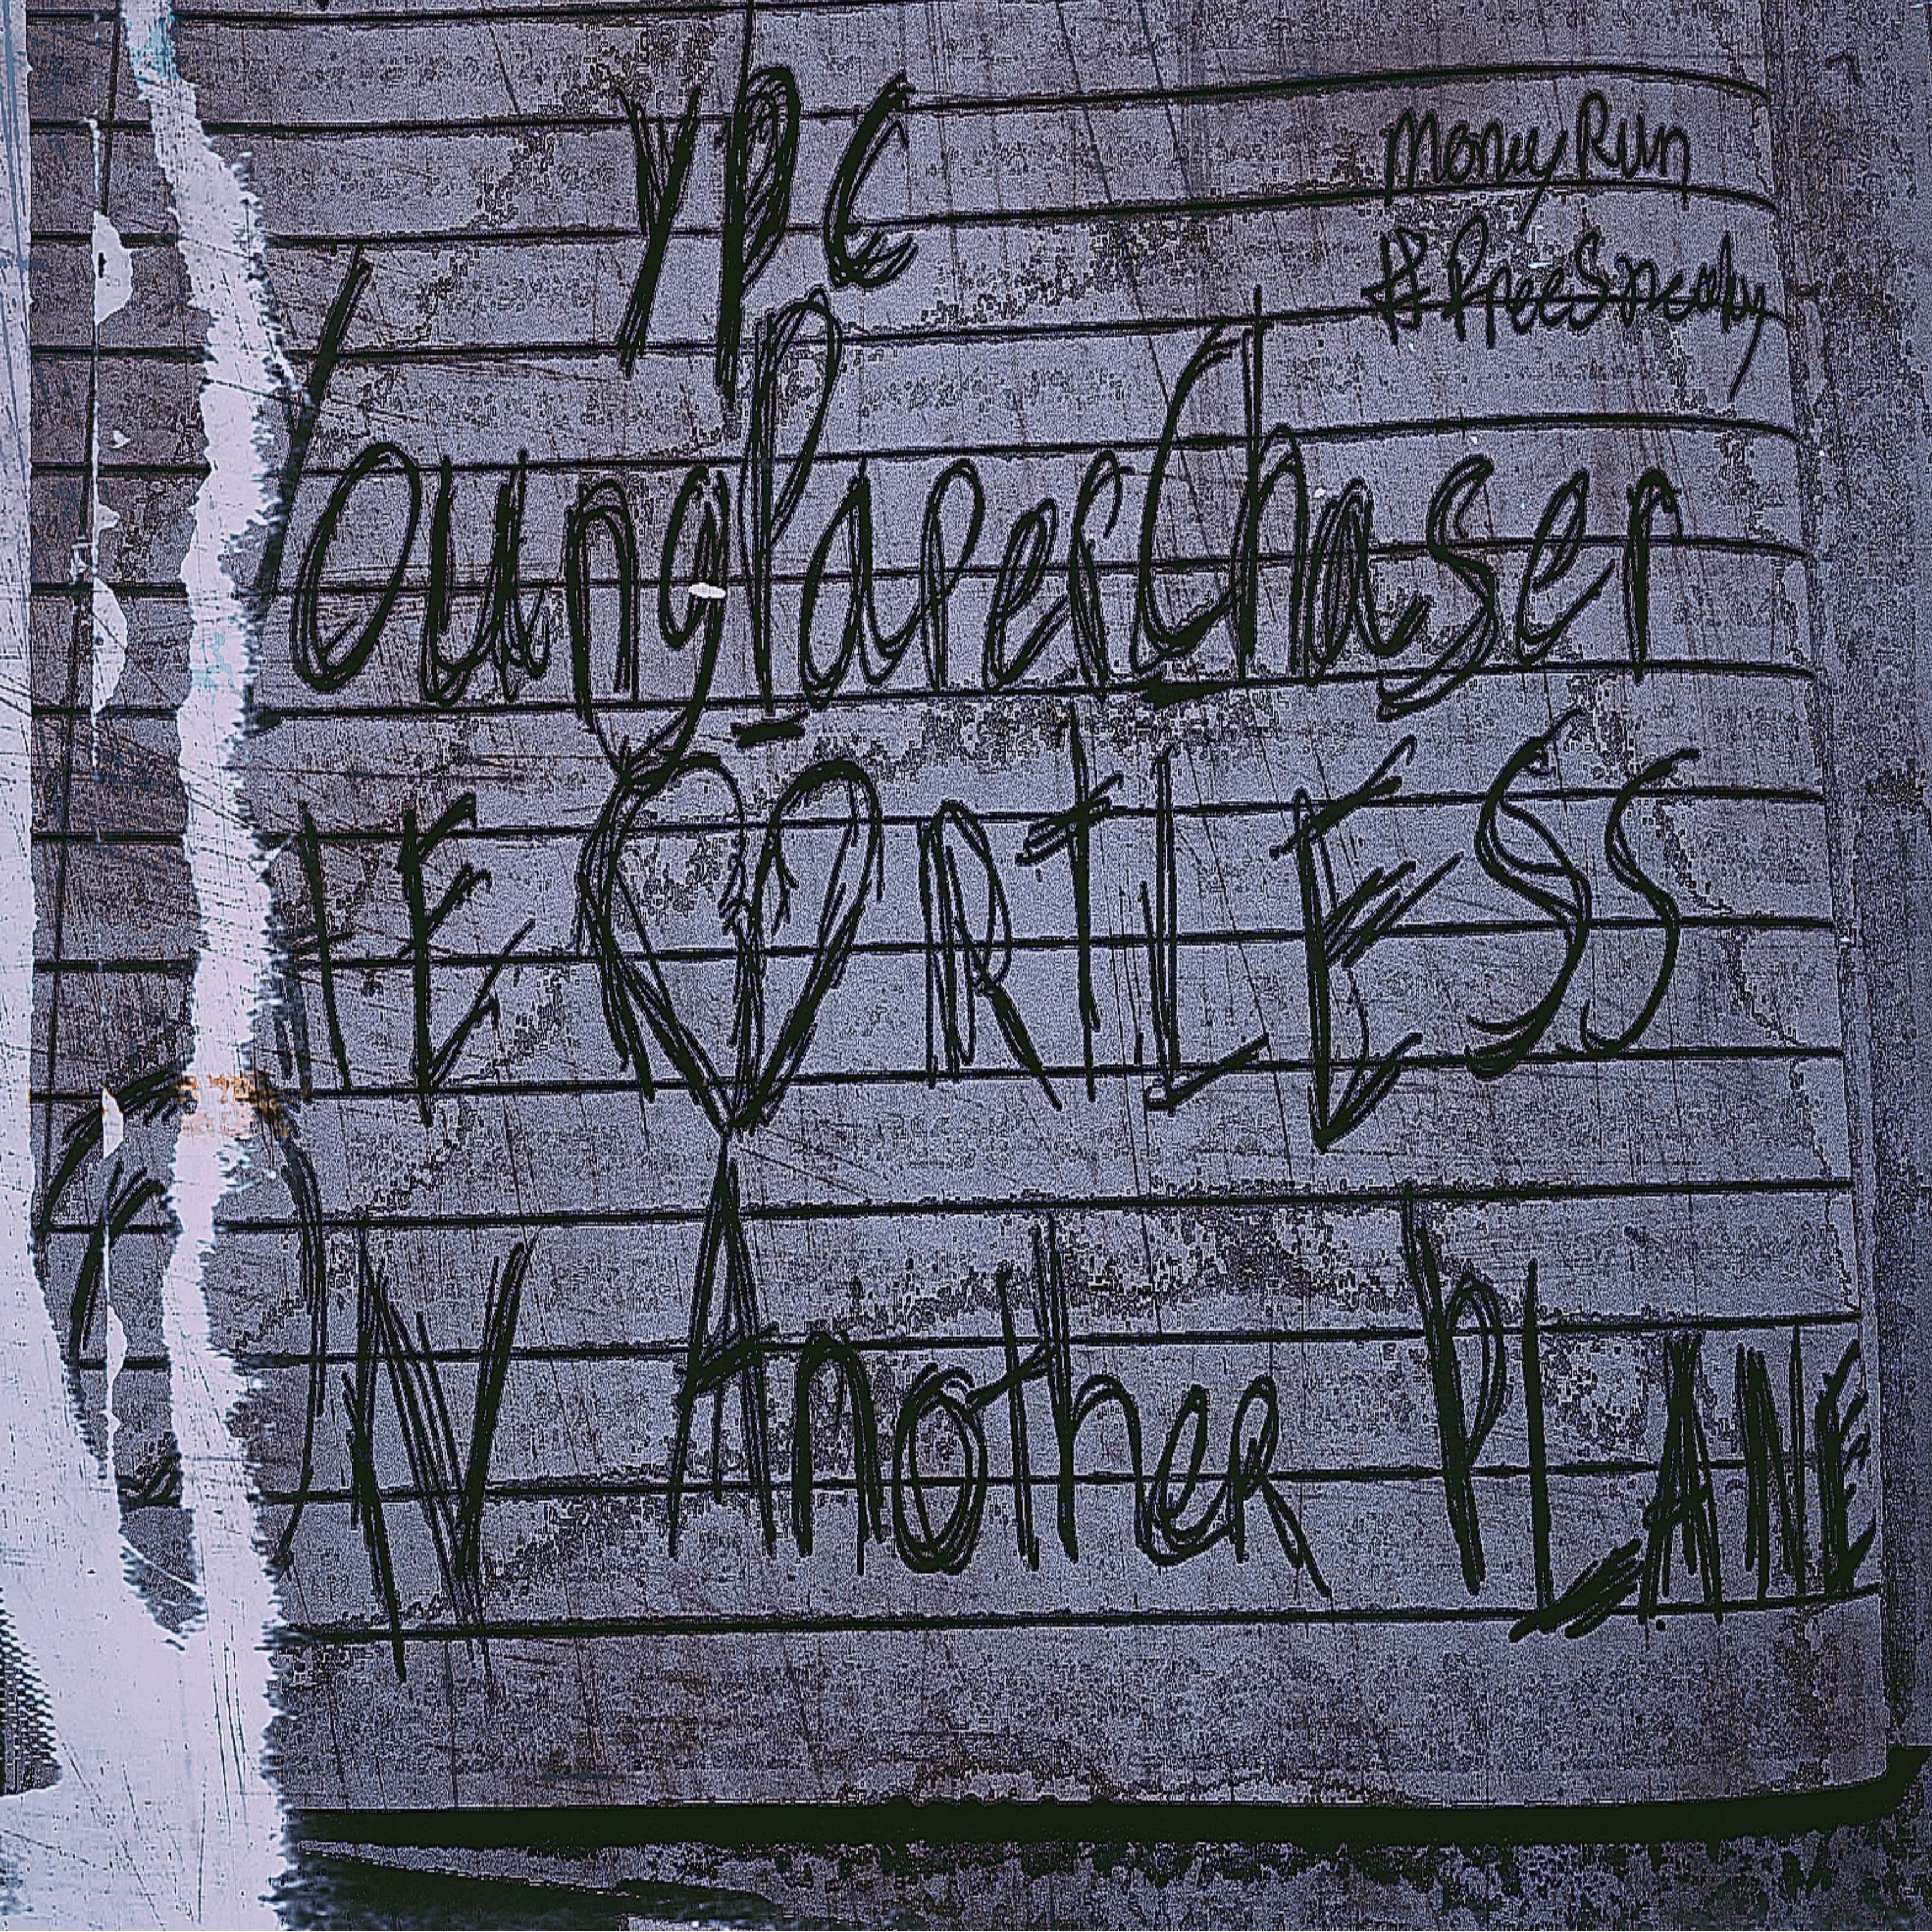 YPC
Money Run
#FreeSneaky
YoungPaperChaser
HEARTLESS
ON Another PLANE